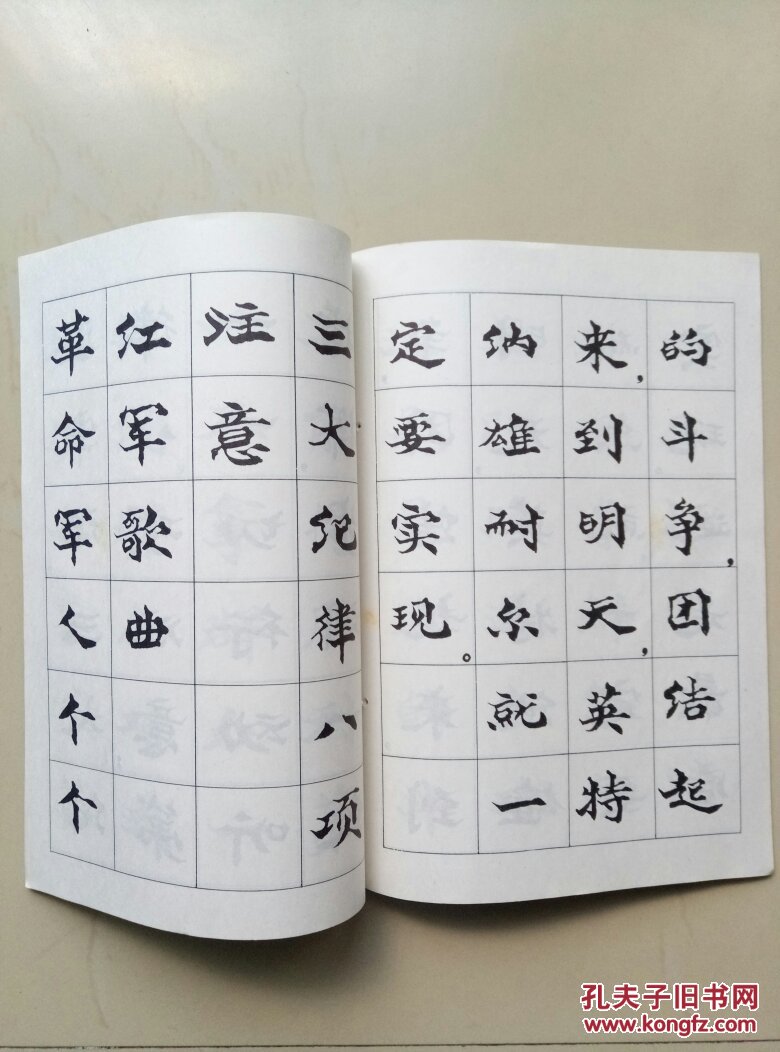 的斗争，团结起
来，到明天，英特
纳雄耐尔就一
定要实现。
三大纪律八项
注意
红军歌曲
革命军人个个
孔夫子旧书网
www.kongfz.com